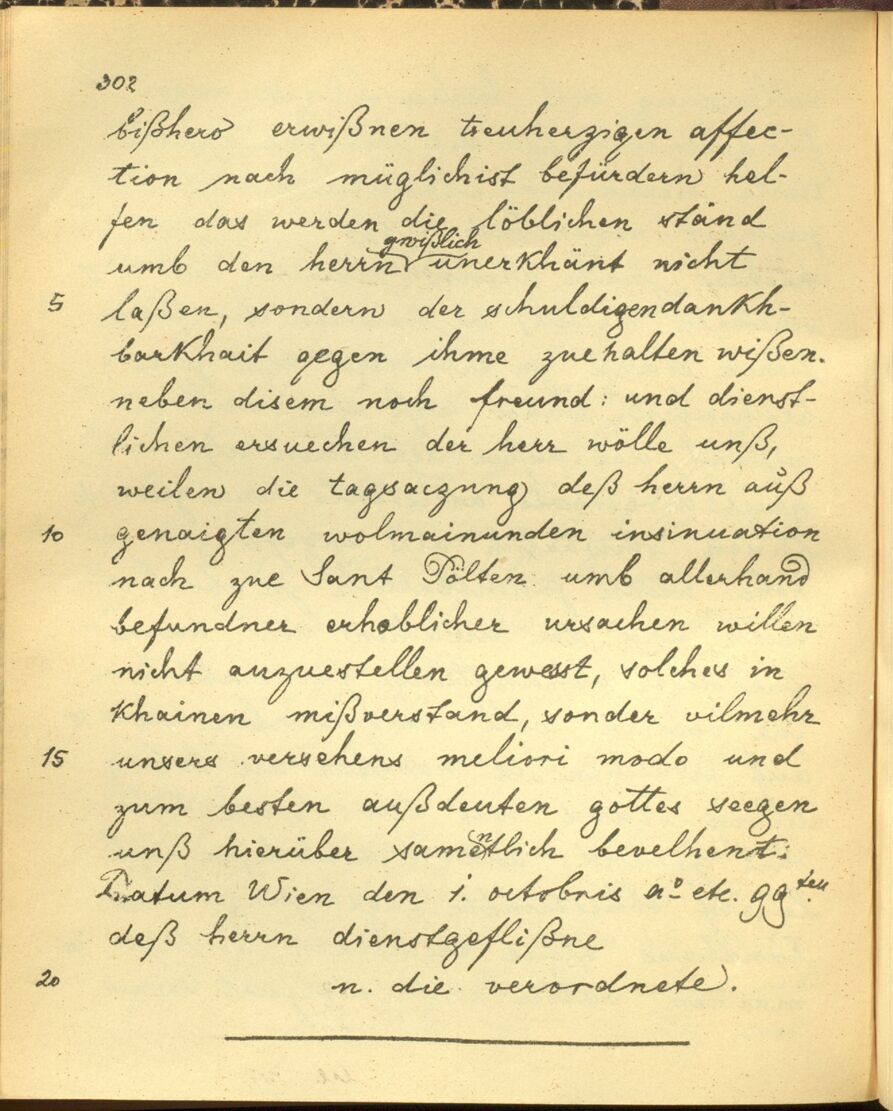 302
bißhero erwißnen treuherzigen affec-
tion nach müglichist befürdern hel-
fen das werden die löblichen ständ
gwißlich
umb den herrn unerkhänt nicht
5 laßen, sondern der schuldigen dankh-
barkhait gegen ihme zue halten wißen.
neben disem noch freund: und dienst-
lichen ersuechen der herr wölle unß,
weilen die tagsaczung deß herrn auß
10 genaigten wolmainunden insinuation
nach zue Sant Pölten umb allerhand
befundner erheblicher ursachen willen
nicht anzuestellen gewesst, solches in
khainen mißverstand, sonder vilmehr
15 unsers versehens meliori modo und
zum besten außdeuten gottes seegen
unß hierüber samentlich bevelhent.
Datum Wien den 1. octobris aº etc. 99ten.
deß herrn dienstgeflißne
20 n. die verordnete.